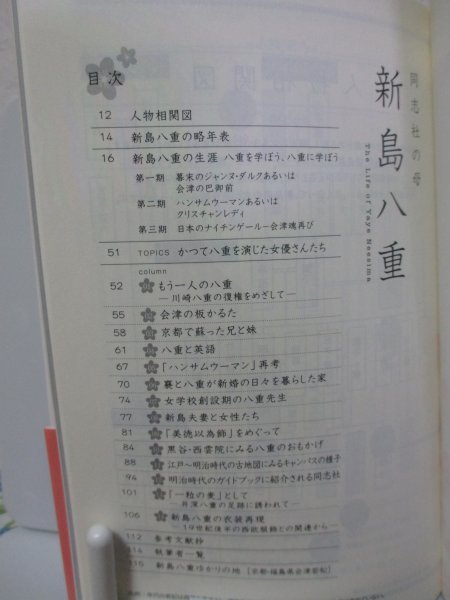 同志社の母
新島八重
The Life of Yaye Neesima
目次
12 人物相関図
14 新島八重の略年表
16 新島八重の生涯 八重を学ぼう、八重に学ぼう
第一期 幕末のジャンヌ・ダルクあるいは
会津の巴御前
第二期 ハンサムウーマンあるいは
クリスチャンレディ
第三期 日本のナイチンゲール－会津魂再び
51 TOPICS かつて八重を演じた女優さんたち
column
52 もう一人の八重
―川崎八重の復権をめざして―
55 会津の板かるた
58 京都で蘇った兄と妹
61 八重と英語
67 「ハンサムウーマン」再考
70 襄と八重が新婚の日々を暮らした家
74 女学校創設期の八重先生
77 新島夫妻と女性たち
81 「美徳以為飾」をめぐって
84 黒谷・西雲院にみる八重のおもかげ
88 江戸～明治時代の古地図にみるキャンパスの様子
94 明治時代のガイドブックに紹介される同志社
101 「一粒の麦」として
―井深八重の足跡に誘われて―
106 新島八重の衣装再現
―19世紀後半の西欧服飾との関連から―
112 参考文献抄
114 執筆者一覧
115 新島八重ゆかりの地［京都・福島県会津若松］